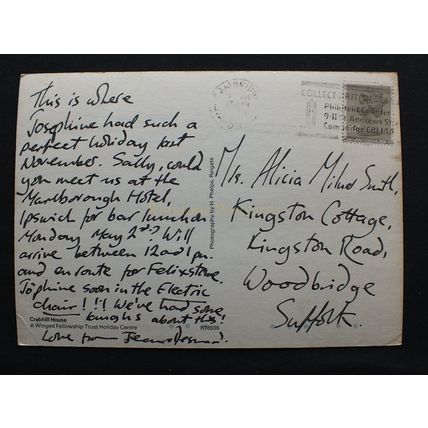 This is where
Josephine had such a
perfect holiday last
November. Sally, could
you meet us at the
Marlborough Hotel,
Ipswich for bar lunch on
Monday May 2nd? Will
arrive between 12 and 1 pm.
and en route for Felixstowe.
Jophine soon in the Electric
chair!!! We've had some
laughs about this!
Love from Jean & Desmond.
Crabhill House
A Winged Fellowship Trust Holiday Centre
H78936
Photography by H. Phelps, Reigate
CAMBRIDGE
COLLECT BRITISH
Philatelic Counter
9-11 St. Andrews St
Cambridge CB1 1AA
Mrs. Alicia Milner Smith,
Kingston Cottage,
Kingston Road,
Woodbridge
Suffolk.